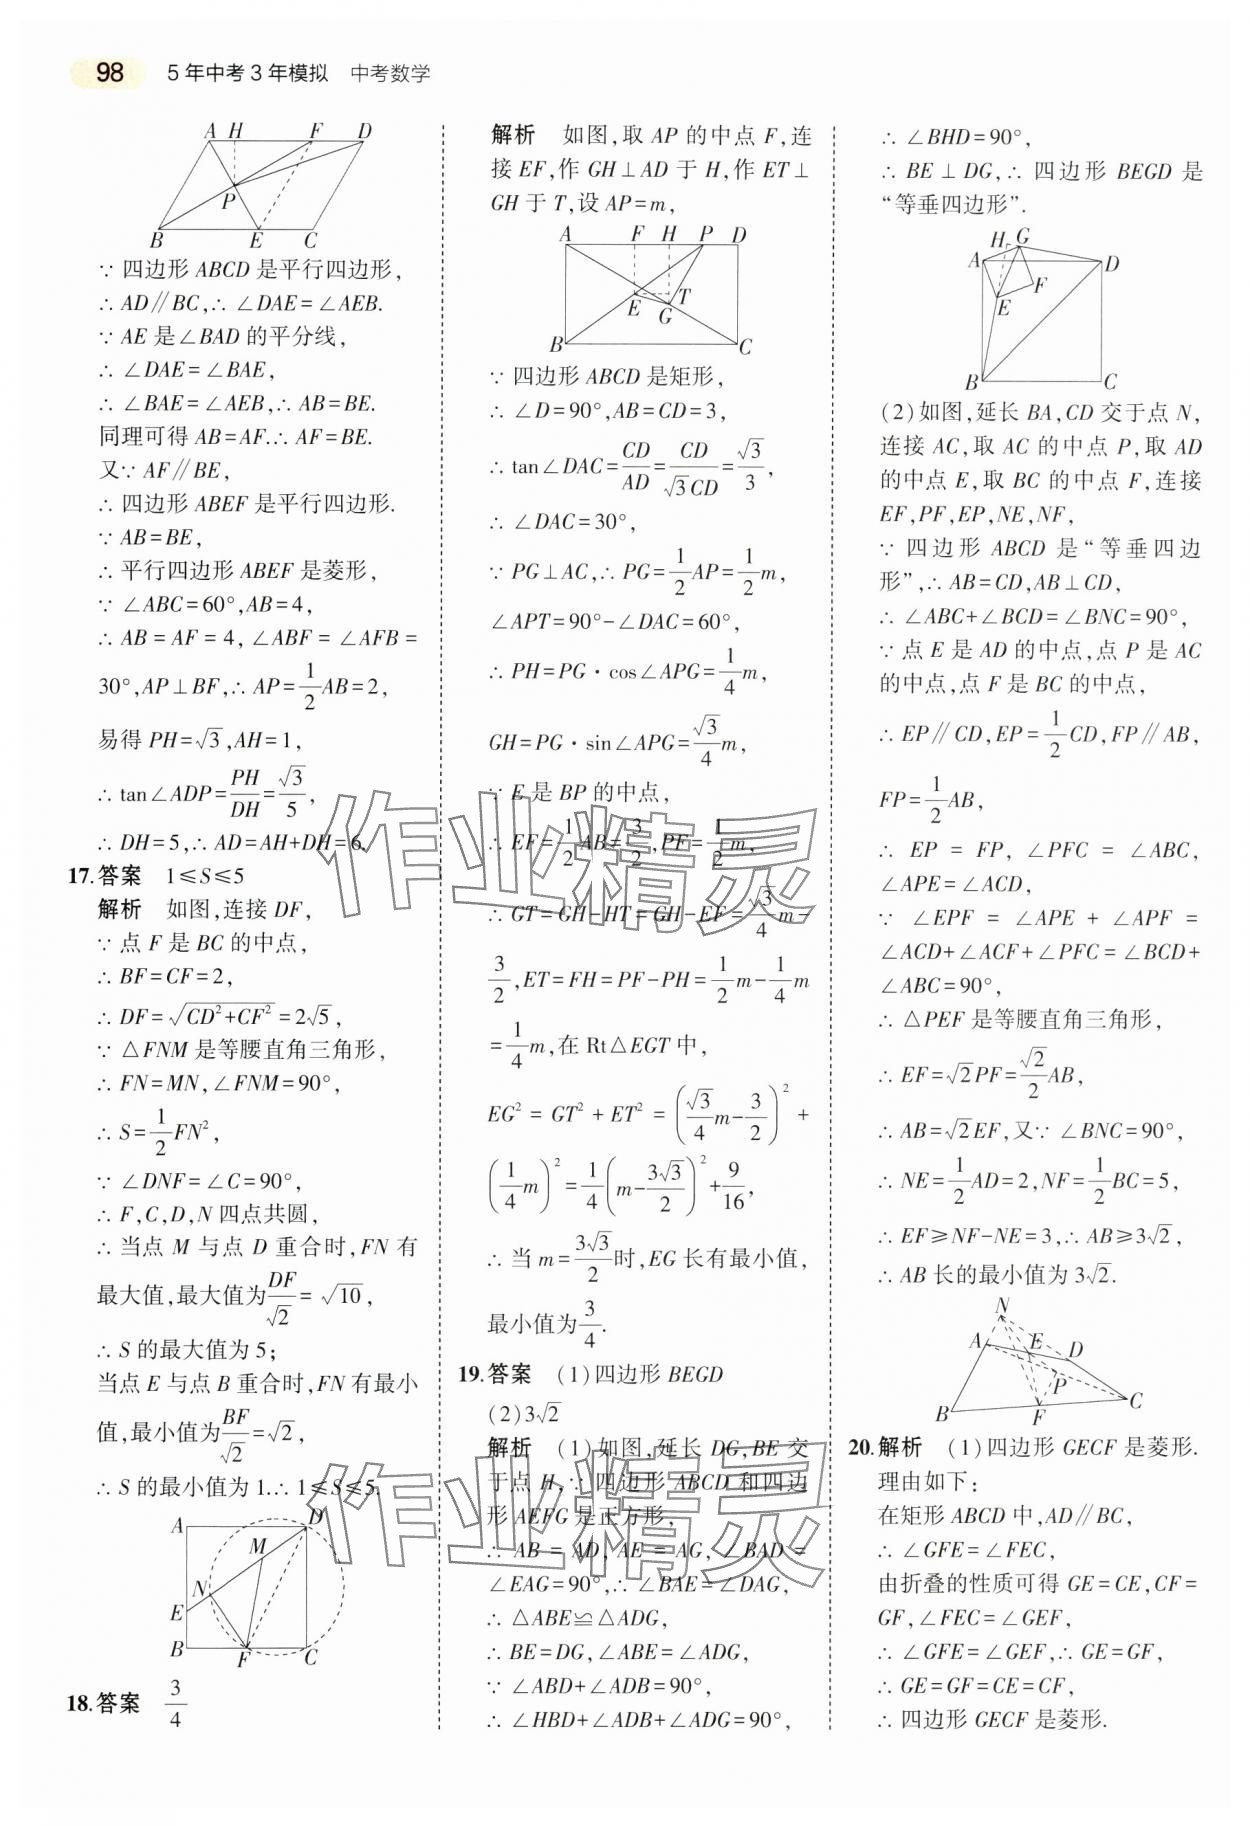 98 5年中考3年模拟 中考数学
A H F D
P
B E C
∵四边形ABCD是平行四边形,
∴AD∥BC,∴∠DAE=∠AEB.
∵AE是∠BAD的平分线,
∴∠DAE=∠BAE,
∴∠BAE=∠AEB,∴AB=BE.
同理可得AB=AF.∴AF=BE.
又∵AF∥BE,
∴四边形ABEF是平行四边形.
∵AB=BE,
∴平行四边形ABEF是菱形,
∵∠ABC=60°,AB=4,
∴AB=AF=4,∠ABF=∠AFB=
30°,AP⊥BF,∴AP=1/2AB=2,
易得PH=√3,AH=1,
∴tan∠ADP=PH/DH=√3/5,
∴DH=5,∴AD=AH+DH=6.
17.答案 1≤S≤5
解析 如图,连接DF,
∵点F是BC的中点,
∴BF=CF=2,
∴DF=√(CD²+CF²)=2√5,
∵△FNM是等腰直角三角形,
∴FN=MN,∠FNM=90°,
∴S=1/2FN²,
∵∠DNF=∠C=90°,
∴F,C,D,N四点共圆,
∴当点M与点D重合时,FN有
最大值,最大值为DF/√2=√10,
∴S的最大值为5;
当点E与点B重合时,FN有最小
值,最小值为BF/√2=√2,
∴S的最小值为1.∴1≤S≤5.
A D
M
N
E
B F C
18.答案 3/4
解析 如图,取AP的中点F,连
接EF,作GH⊥AD于H,作ET⊥
GH于T,设AP=m,
A F H P D
E T
G
B C
∵四边形ABCD是矩形,
∴∠D=90°,AB=CD=3,
∴tan∠DAC=CD/AD=CD/√3CD=√3/3,
∴∠DAC=30°,
∵PG⊥AC,∴PG=1/2AP=1/2m,
∠APT=90°-∠DAC=60°,
∴PH=PG·cos∠APG=1/4m,
GH=PG·sin∠APG=√3/4m,
∵E是BP的中点,
∴EF=1/2AB=3/2,PF=1/2m,
∴GT=GH-HT=GH-EF=√3/4m-
3/2,ET=FH=PF-PH=1/2m-1/4m
=1/4m,在Rt△EGT中,
EG²=GT²+ET²=(√3/4m-3/2)²+
(1/4m)²=1/4(m-3√3/2)²+9/16,
∴当m=3√3/2时,EG长有最小值,
最小值为3/4.
19.答案 (1)四边形BEGD
(2)3√2
解析 (1)如图,延长DG,BE交
于点H,∵四边形ABCD和四边
形AEFG是正方形,
∴AB=AD,AE=AG,∠BAD=
∠EAG=90°,∴∠BAE=∠DAG,
∴△ABE≌△ADG,
∴BE=DG,∠ABE=∠ADG,
∵∠ABD+∠ADB=90°,
∴∠HBD+∠ADB+∠ADG=90°,
∴∠BHD=90°,
∴BE⊥DG,∴四边形BEGD是
“等垂四边形”.
H G
A D
F
E
B C
(2)如图,延长BA,CD交于点N,
连接AC,取AC的中点P,取AD
的中点E,取BC的中点F,连接
EF,PF,EP,NE,NF,
∵四边形ABCD是“等垂四边
形”,∴AB=CD,AB⊥CD,
∴∠ABC+∠BCD=∠BNC=90°,
∵点E是AD的中点,点P是AC
的中点,点F是BC的中点,
∴EP∥CD,EP=1/2CD,FP∥AB,
FP=1/2AB,
∴EP=FP,∠PFC=∠ABC,
∠APE=∠ACD,
∵∠EPF=∠APE+∠APF=
∠ACD+∠ACF+∠PFC=∠BCD+
∠ABC=90°,
∴△PEF是等腰直角三角形,
∴EF=√2PF=√2/2AB,
∴AB=√2EF,又∵∠BNC=90°,
∴NE=1/2AD=2,NF=1/2BC=5,
∴EF≥NF-NE=3,∴AB≥3√2,
∴AB长的最小值为3√2.
N
A E D
P
C
B F
20.解析 (1)四边形GECF是菱形.
理由如下:
在矩形ABCD中,AD∥BC,
∴∠GFE=∠FEC,
由折叠的性质可得GE=CE,CF=
GF,∠FEC=∠GEF,
∴∠GFE=∠GEF,∴GE=GF,
∴GE=GF=CE=CF,
∴四边形GECF是菱形.
作业精灵
作业精灵